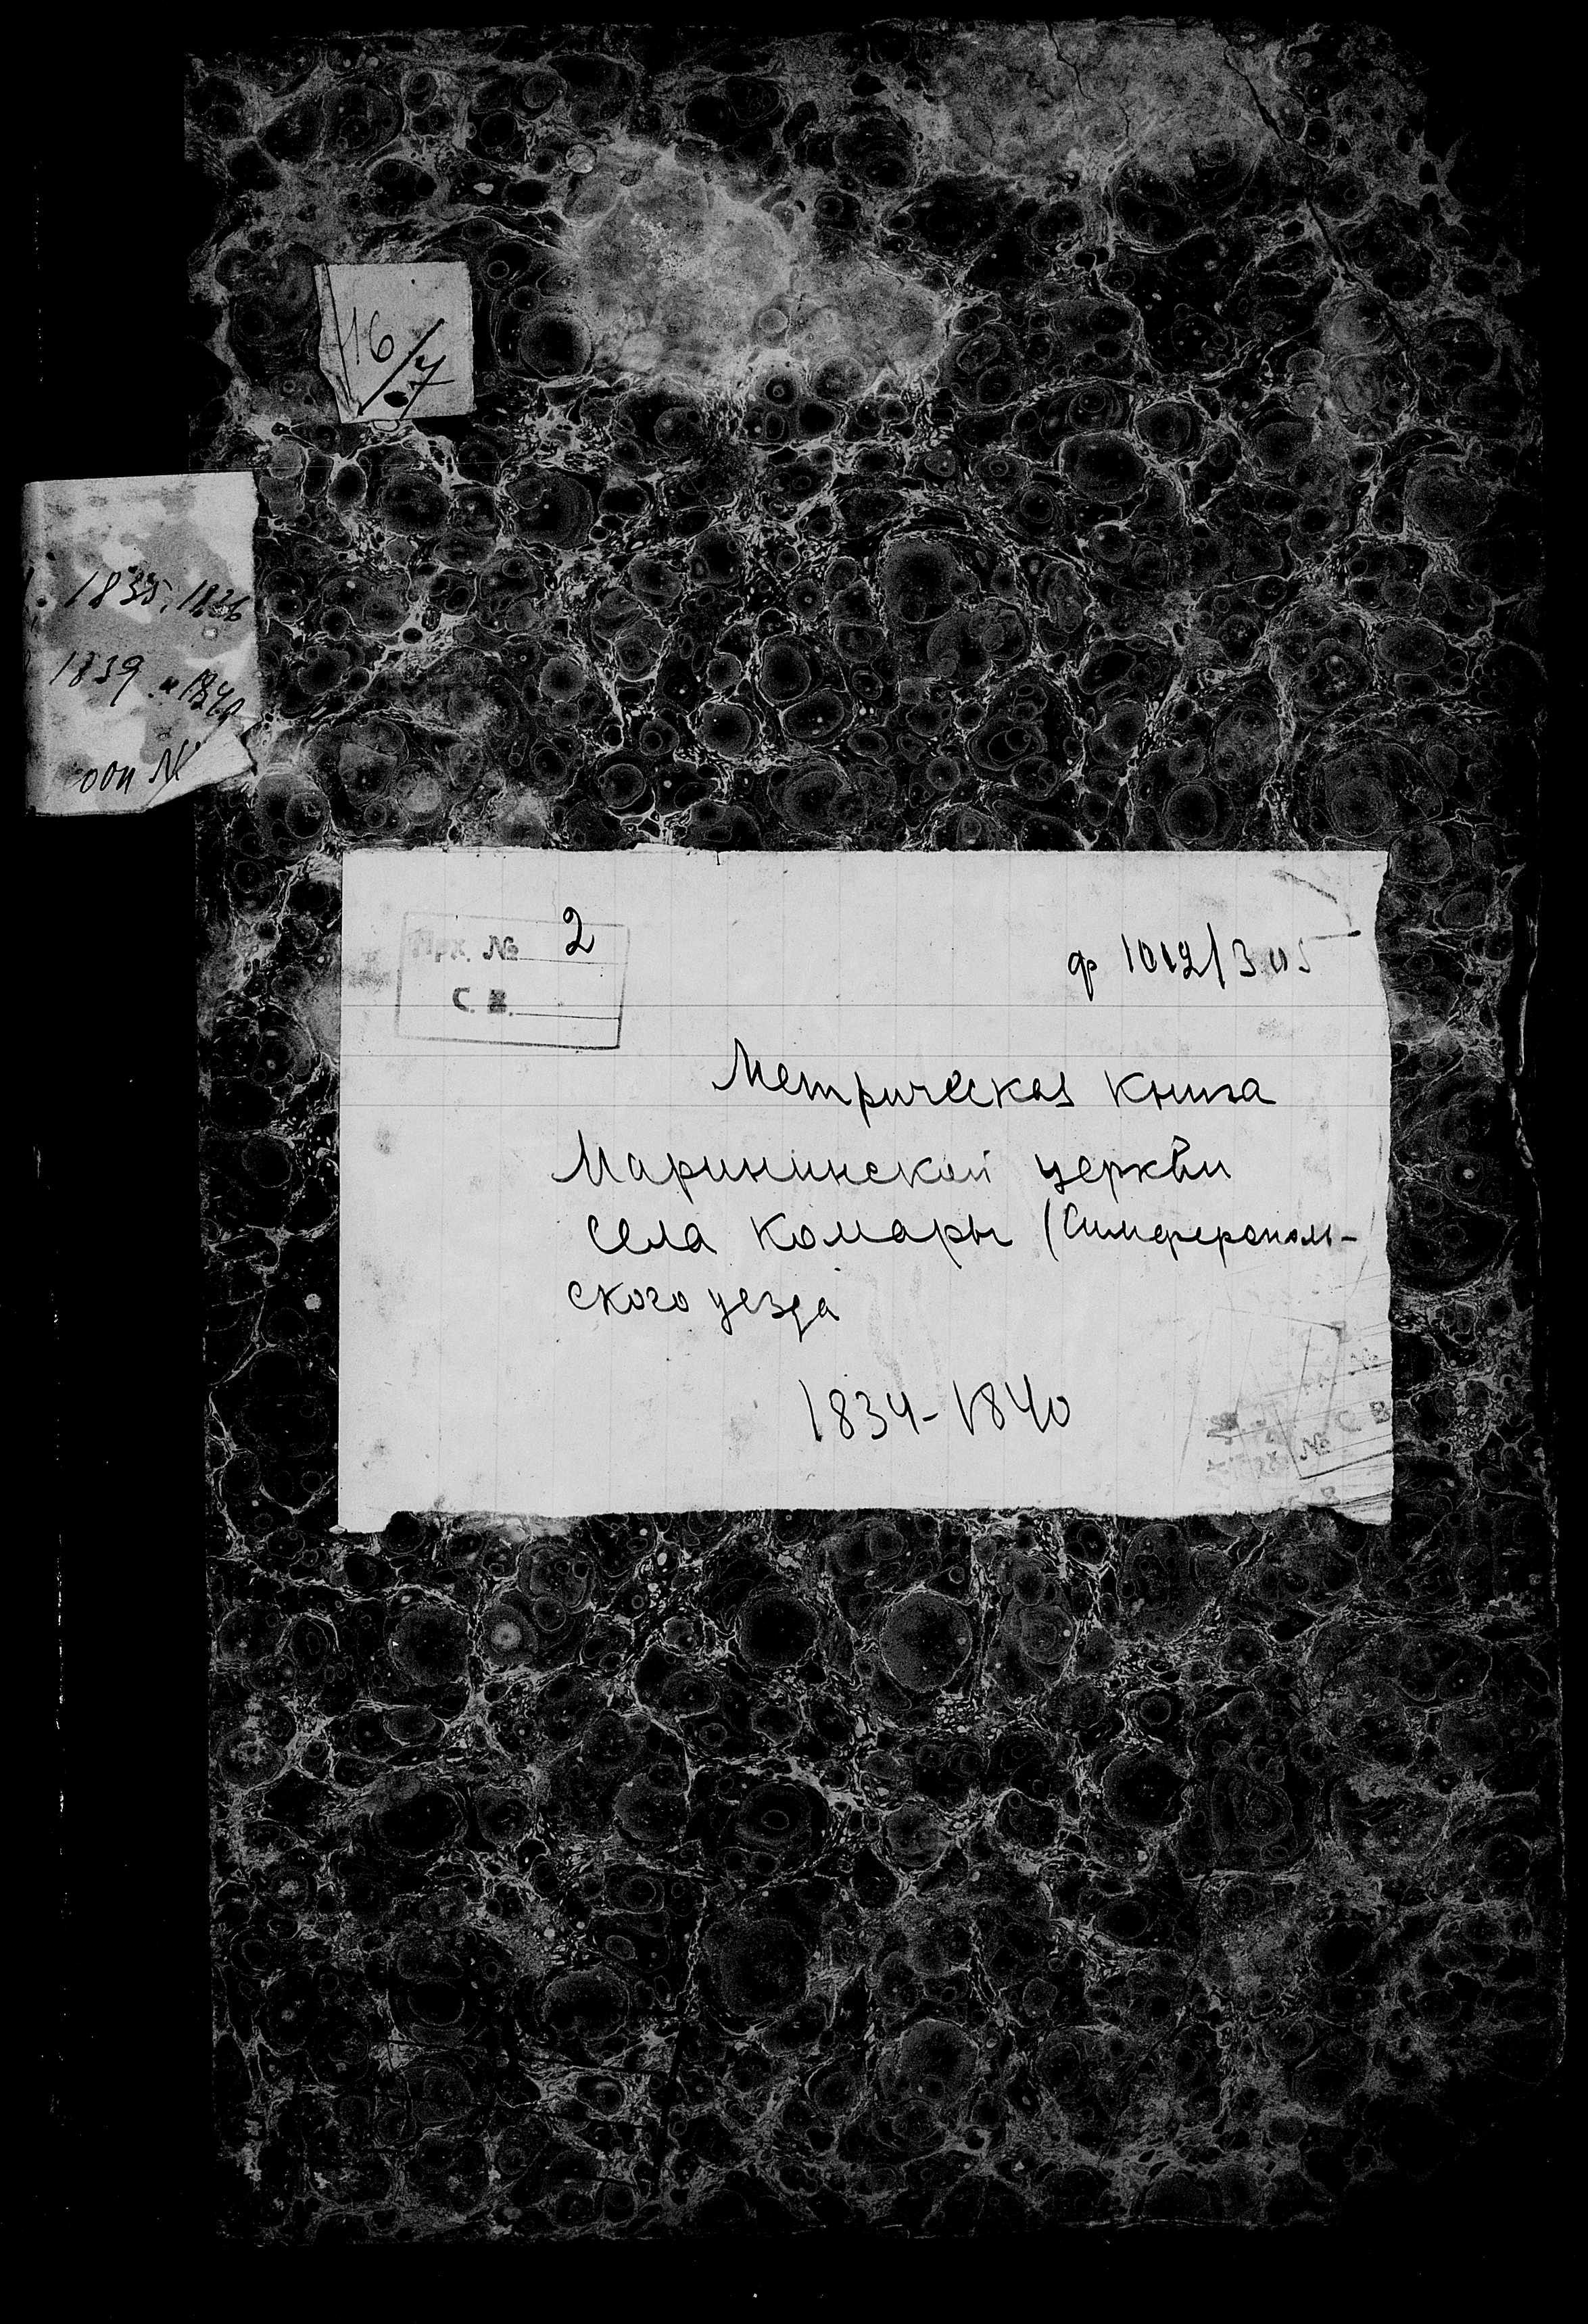 116/07
1835, 1836
1839 и 1840
№
Арх. № 2
С. В.
ф 1012/305
Метрическая книга
Марининской церкви
села Комары (Симферополь-
ского уезда
1834-1840
№ С В